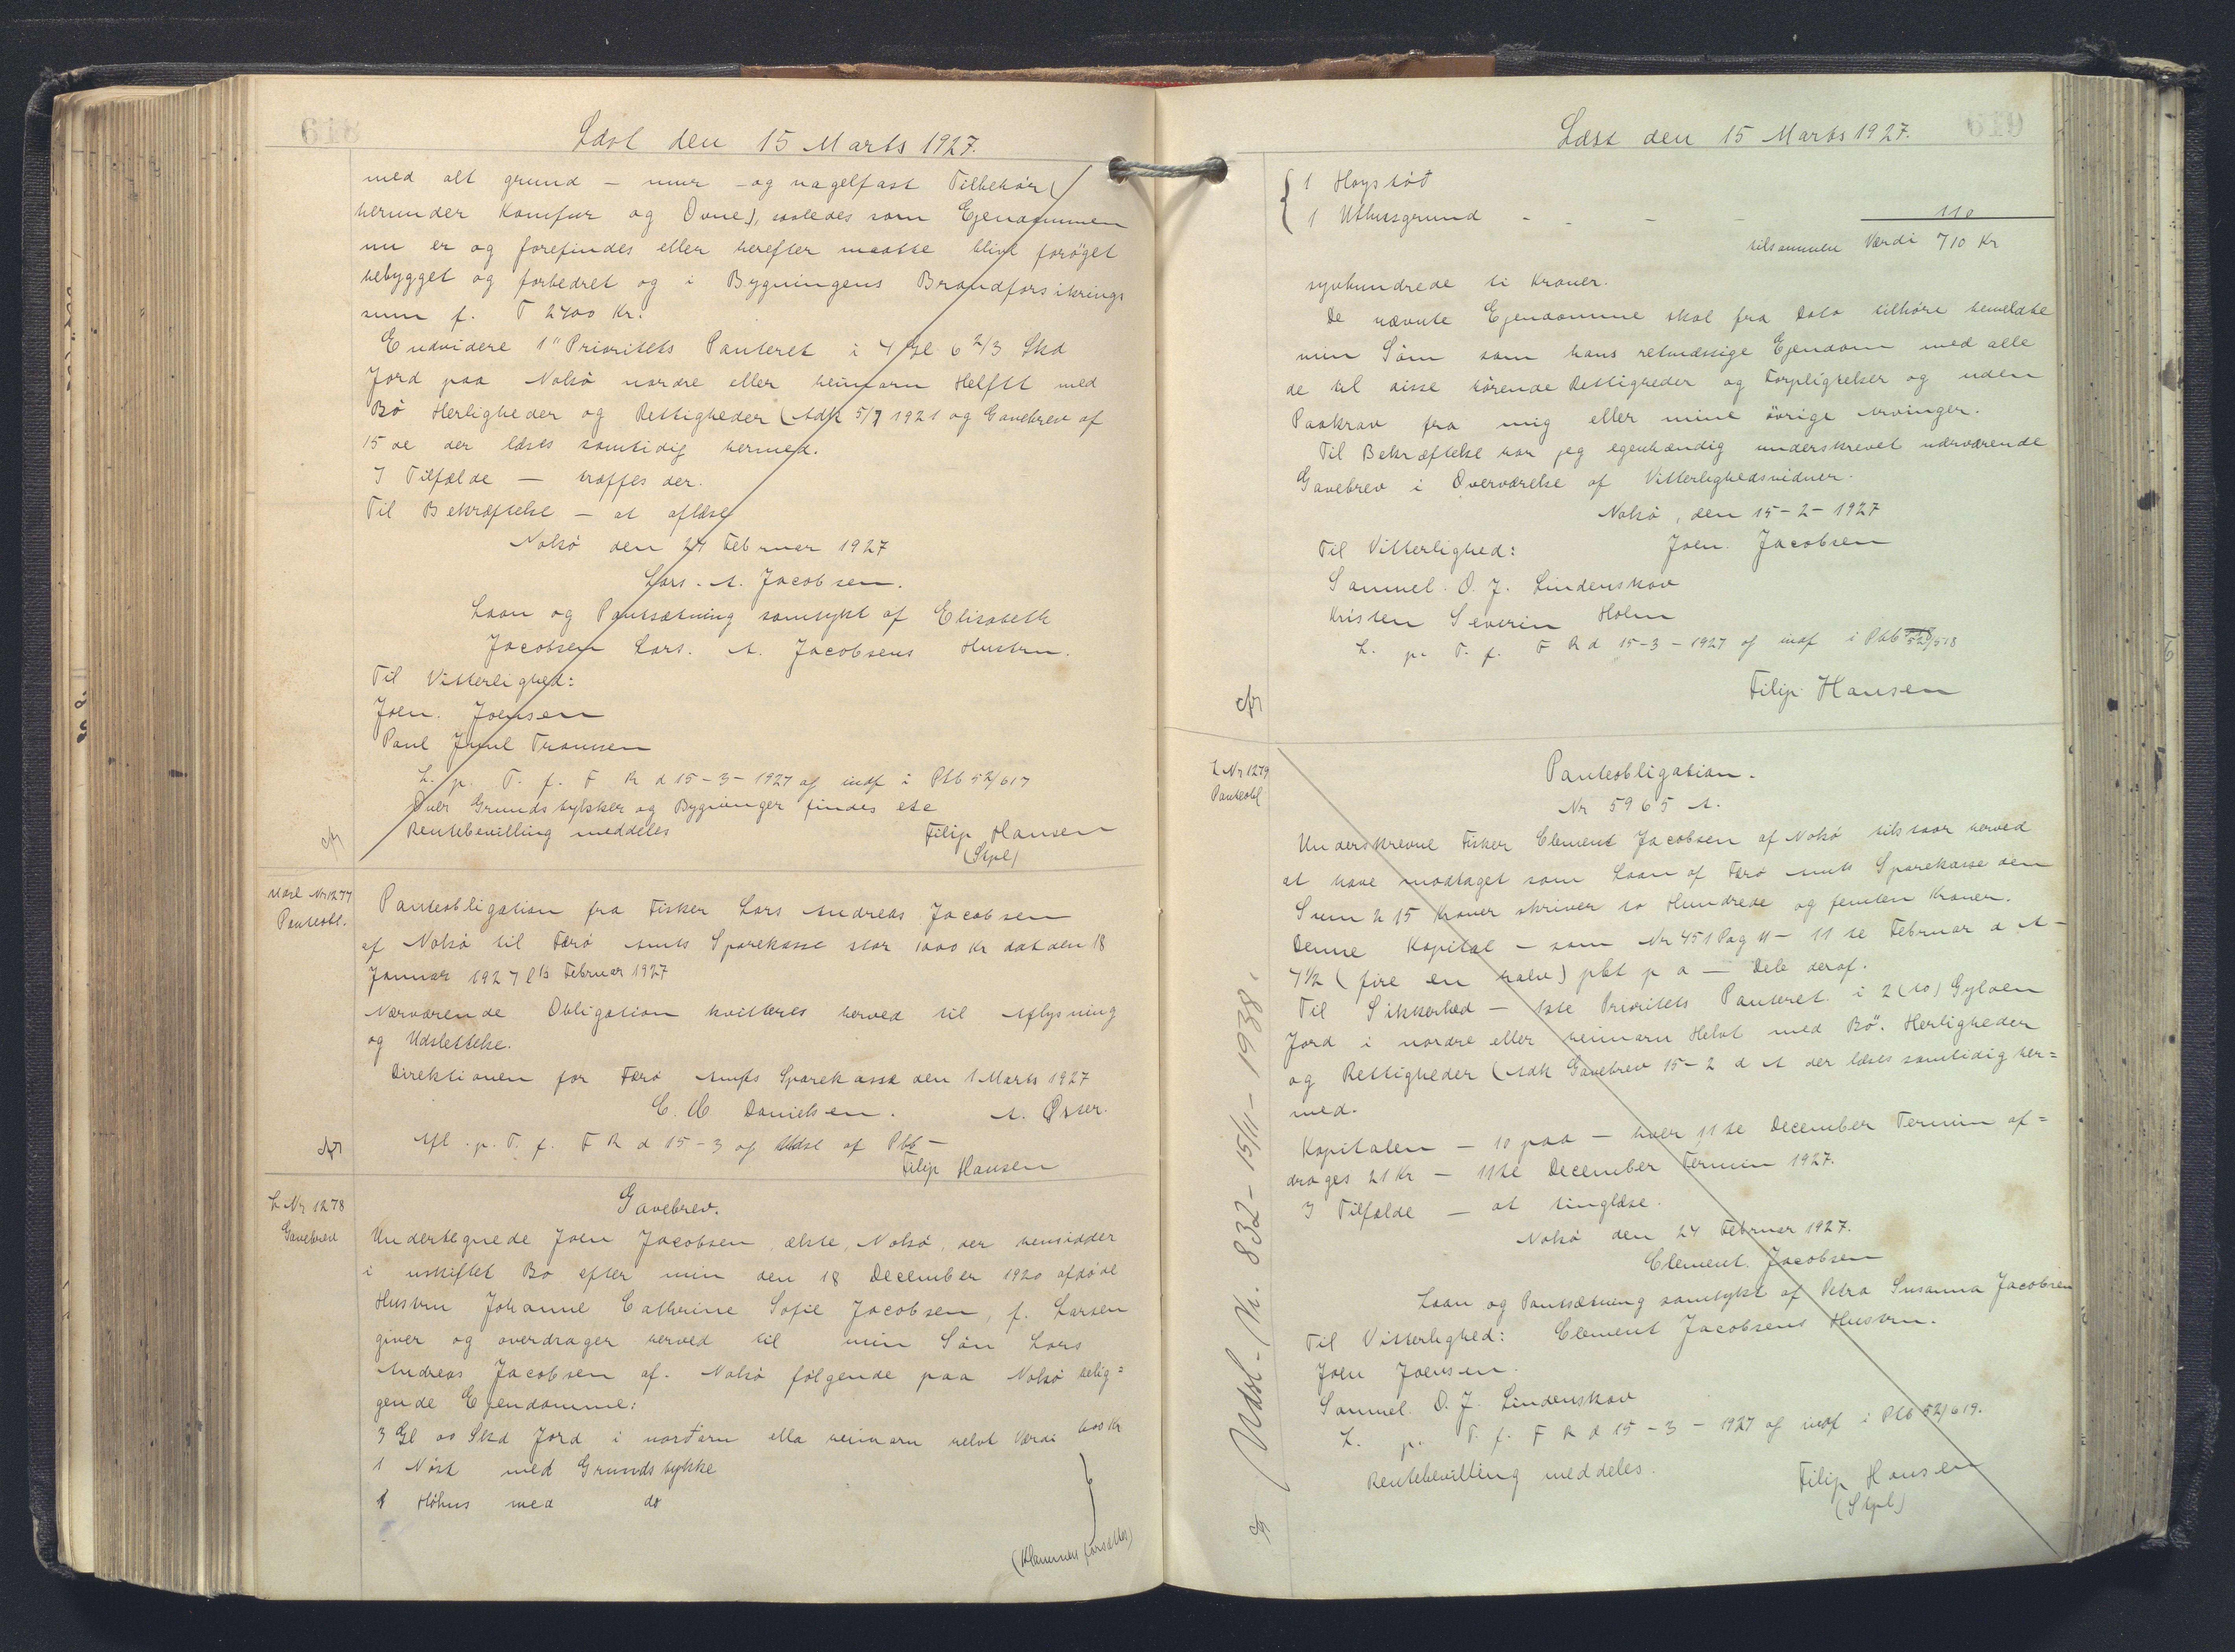 618
Læst den 15 Marts 1927.
med alt grund - mur - og nagelfast Tilbehör (
herunder Komfur og Ovne), saaledes som Ejendommen
nu er og forefindes eller herefter maatte blive forøget
bebygget og forbedret og i Bygningens Brandforsikrings
sum f. T 2400 Kr.
Endvidere 1" Prioritets Panteret i 4 Gl 6 2/3 Skd
Jord paa Nolsö nordre eller heimarn Helftt med
Bö Herligheder og Rettigheder (Adk 5/7 1921 og Gavebrev af
15 ds der læses samtidig hermed.
I Tilfælde — træffes der.
Til Bekræftelse — at aflæse
Nolsö den 24 Februar 1927
Lars. A. Jacobsen.
Laan og Pantsætning samtykt af Elisabeth
Jacobsen Lars. A. Jacobsens Hustru.
Til Vitterlighed:
Joen. Joensen
Paul Juul Transsen
L. p. T. f. F R d 15-3-1927 og indf i Ptb 52/617
Over Grundstykker og Bygninger findes etc
Rentebevilling meddeles
Filip Hansen
(Stpl)
Udsl Nr 1277
Panteobl.
Panteobligation fra Fisker Lars Andreas Jacobsen
af Nolsö til Færö Amts Sparekasse stor 1000 Kr dat den 18
Januar 1927 Februar 1927
Nærværende Obligation kvitteres herved til Aflysning
og Udslettelse.
Direktionen for Færö Amts Sparekasse den 1 Marts 1927
C. M Danielsen. A. Öster.
Afl. p. T. f. F R d 15-3 og Udsl af Ptb —
Filip Hansen
L Nr 1278
Gavebrev
Gavebrev.
Undertegnede Joen Jacobsen, ælste, Nolsö, der hensidder
i uskiftet Bo efter min den 18 December 1920 afdöde
Hustru Johanne Cathrine Sofie Jacobsen, f. Larsen
giver og overdrager herved til min Sön Lars
Andreas Jacobsen af. Nolsö fölgende paa Nolsö belig=
gende Ejendomme:
3 Gl oo Skd Jord i norðara ella heimara helvt Værdi 600 Kr
1 Nöst med Grundstykke
1 Höhus med do
(Klammen forsættes)
619
Læst den 15 Marts 1927.
1 Hoystöð
1 Uthusgrund - - - - 110
tilsammen Værdi 710 Kr
syvhundrede ti Kroner.
De nævnte Ejendomme skal fra Dato tilhöre bemeldte
min Sön som hans retmæssige Ejendom med alle
de til disse hörende Rettigheder og Forpligtelser og uden
Paakrav fra mig eller mine övrige Arvinger.
Til Bekræftelse har jeg egenhændig underskrevet nærværende
Gavebrev i Overværelse af Vitterlighedsvidner.
Nolsö, den 15-2-1927
Til Vitterlighed: Joen. Jacobsen
Samuel. O. J. Lindenskov
Kristen Severin Holm
L. p. T. f. F R d 15-3-1927 og indf i Ptb 52/518
Filip Hansen
L Nr 1279
Panteobl
Panteobligation.
Nr 5965 A.
Underskrevne Fisker Clement Jacobsen af Nolsö tilstaar herved
at have modtaget som Laan af Færö Amts Sparekasse den
Sum 215 Kroner skriver to Hundrede og femten Kroner.
Denne Kapital — som Nr 451 Pag 11 — 11 te Februar d A —
4½ (fire en halv) pkt p a — Dele deraf.
Til Sikkerhed — 1ste Prioritets Panteret i 2 (to) Gylden
Jord i nordre eller heimarn Helvt med Bö. Herligheder
og Rettigheder (Adk Gavebrev 15-2 d A der læses samtidig her=
med.
Kapitalen — 10 paa — hver 11te December Termin af=
drages 21 Kr — 11te December Termin 1927.
I Tilfælde — at tinglæse.
Nolsö den 24 Februar 1927.
Clement. Jacobsen
Laan og Pantsætning samtykt af Petra Susanna Jacobsen
Til Vitterlighed: Clement Jacobsens Hustru.
Joen Joensen.
Samuel. O. J. Lindenskov
L. p. T. f. F R d 15-3-1927 og indf i Ptb 52/619.
Rentebevilling meddeles.
Filip Hansen
(Stpl)
Udsl. Nr. 832 - 15/11 - 1938.